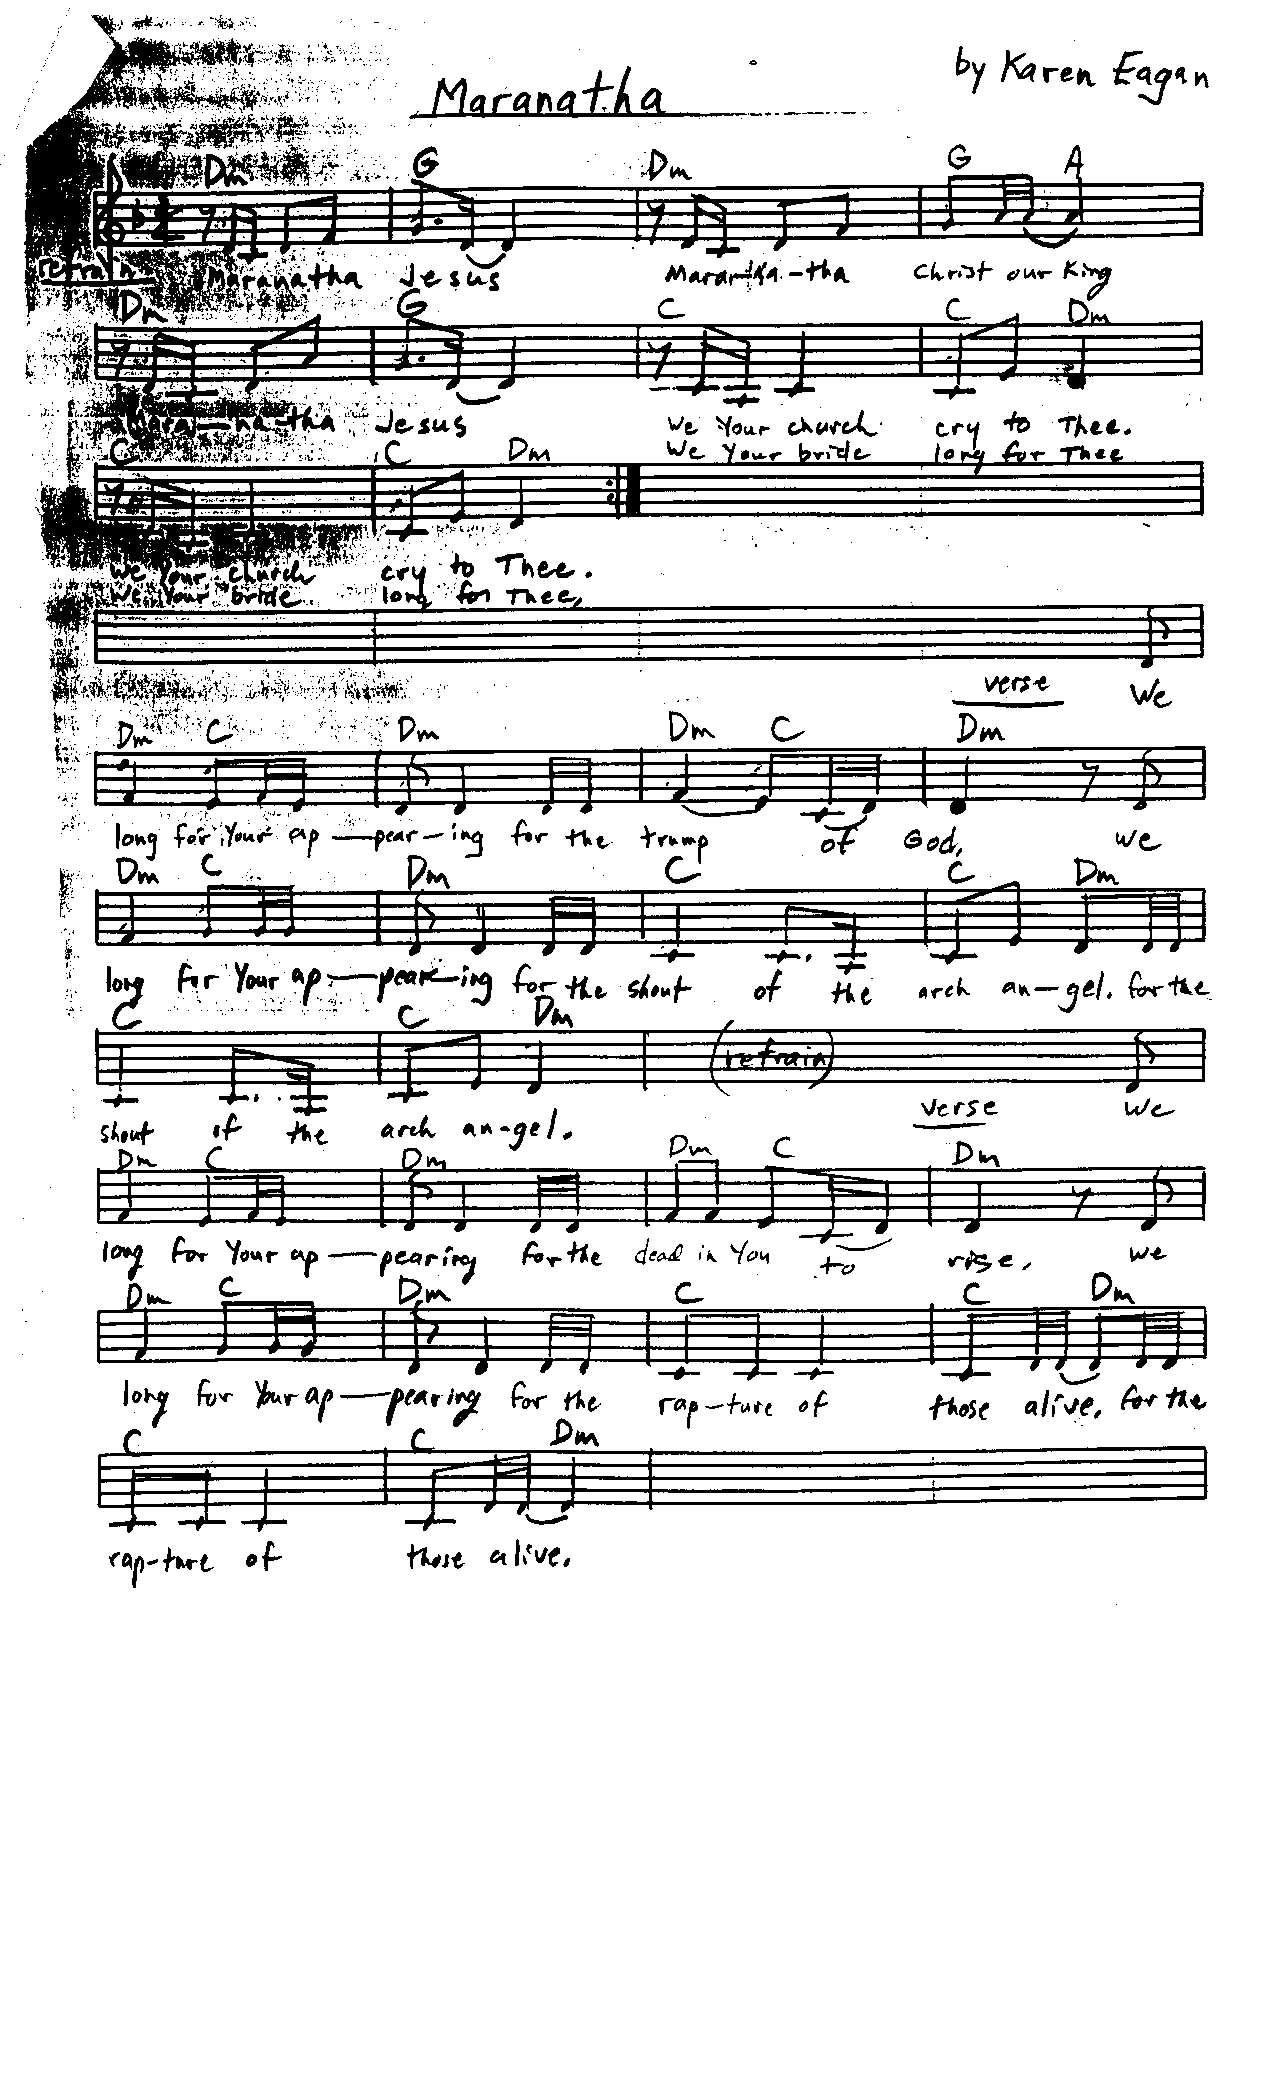 by Karen Eagan
Maranatha
Dm G Dm G A
refrain Maranatha Jesus Maranatha-tha Christ our King
Dm G C C Dm
Mara-na-tha Jesus We Your church cry to Thee.
We Your bride long for Thee
C C Dm
We Your church cry to Thee.
We Your bride long for Thee,
verse We
Dm C Dm Dm C Dm
long for Your ap-pear-ing for the trump of God, we
Dm C Dm C C Dm
long for Your ap-pear-ing for the shout of the arch an-gel. for the
C C Dm (refrain)
verse We
shout of the arch an-gel.
Dm C Dm Dm C Dm
long for Your ap-pearing for the dead in You to rise, we
Dm C Dm C C Dm
long for Your ap-pearing for the rap-ture of those alive, for the
C C Dm
rap-ture of those alive.